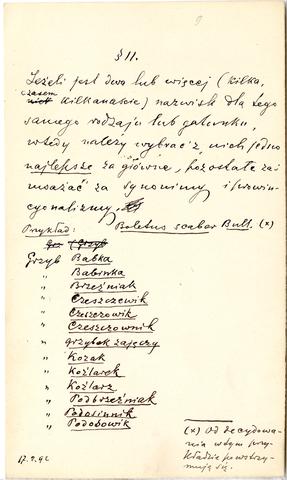 9
§ 11.
Jeżeli jest dwa lub więcej (kilka,
czasem
kilkanaście) nazwisk dla tego
samego rodzaju lub gatunku,
wtedy należy wybrać z nich jedno
najlepsze za główne, pozostałe zaś
uważać za synonimy i prowin-
cyonalizmy.
Przykład: Boletus scaber Bull. (x)
Grzyb Babka
" Babinka
" Brzeźniak
" Czeszczewik
" Czeszczowik
" Czeszczownik
" Grzybek zajęczy
" Kozak
" Koźlarek
" Koźlarz
" Podbrzeźniak
" Podosinnik
" Podobowik
(x) Od decydowa-
nia w tym przy-
kładzie powstrzy-
mują się.
17.9.92